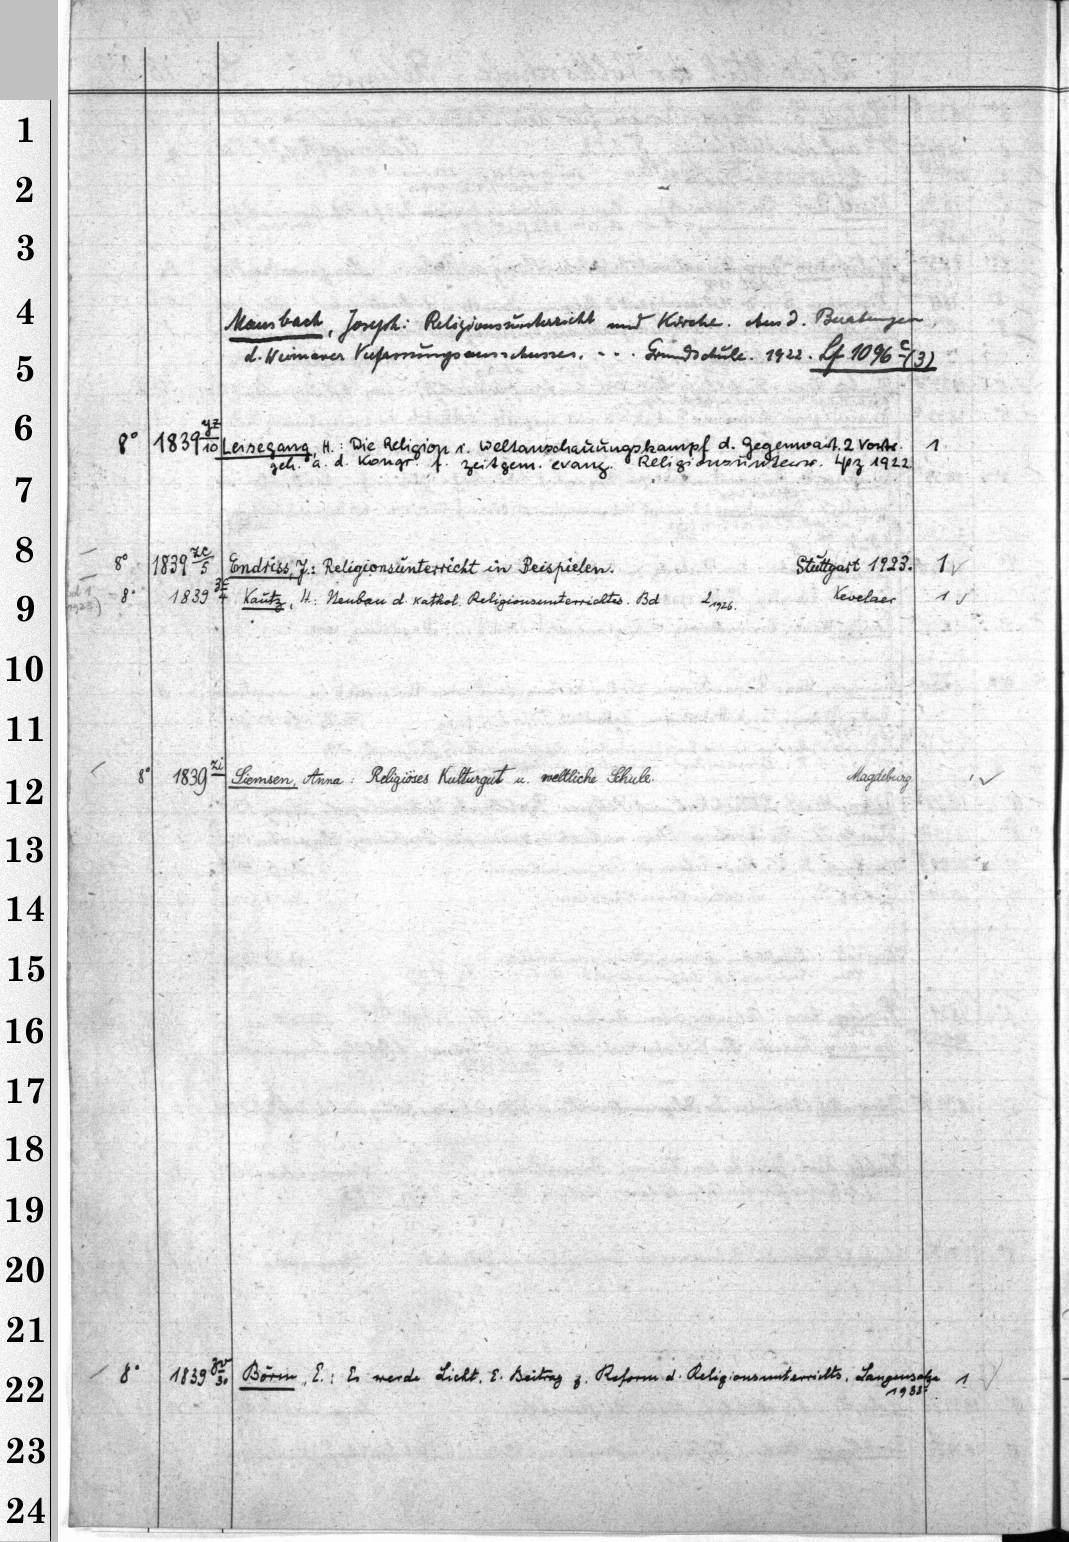 1
2
3
4
Mausbach, Joseph: Religionsunterricht und Kirche. Aus d. Beratungen
d. Weimarer Verfassungsausschusses. - - . Grundschule. 1922. Lf 1096 c (3)
5
6
8° 1839 yz/10 Leisegang, H.: Die Religion i. Weltanschauungskampf d. Gegenwart. 2 Vortr. 1
geh. a. d. Kongr. f. zeitgem. evang. Religionsunterr. Lpz 1922
7
8
8° 1839 zc/5 Endriss, J.: Religionsunterricht in Beispielen. Stuttgart 1923. 1
9
8° 1839 Kautz, H: Neubau d kathol. Religionsunterrichtes. Bd 1926. Kevelaer 1
10
11
12
8° 1839 zi Siemsen, Anna: Religiöses Kulturgut u. weltliche Schule. Magdeburg
13
14
15
16
17
18
19
20
21
22
8° 1839 zv/30 Börm, E.: Es werde Licht. E. Beitrag z. Reform d. Religionsunterrichts. Langensalza 1
1933
23
24